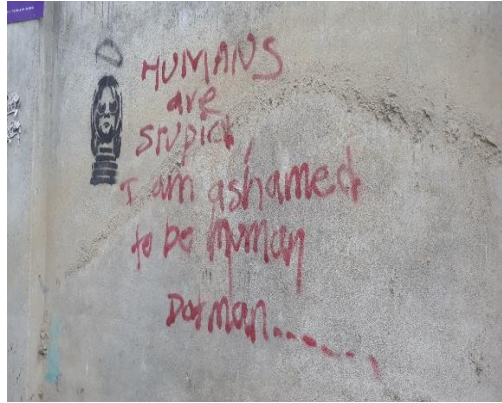 HUMANS
are
stupid,
I am ashamed
to be human
Dotman.......